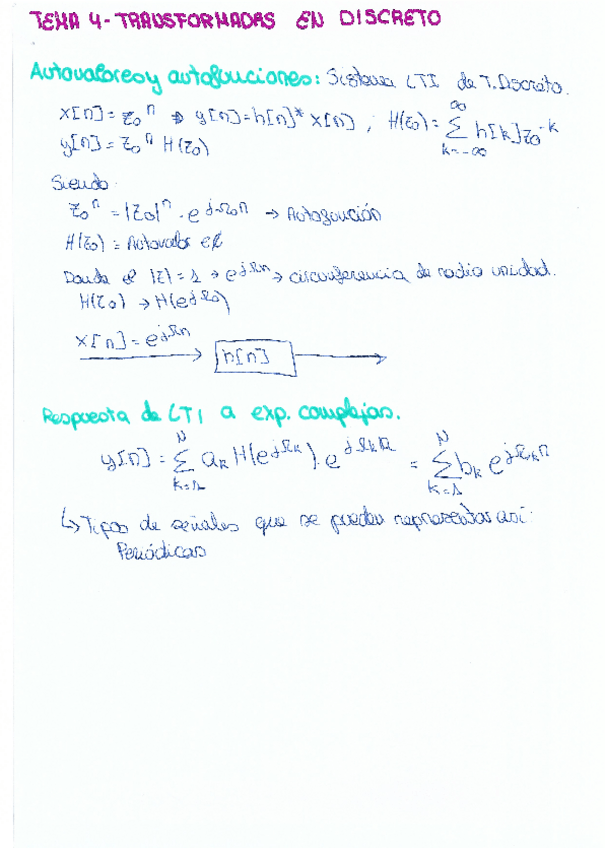 TEMA 4 - TRANSFORMADAS EN DISCRETO
Autovalores y autofunciones: Sistema LTI de T. Discreto.
x[n] = z₀ⁿ ⇒ y[n] = h[n] * x[n] ; H(z₀) = ∑_{k=-∞}^{∞} h[k] z₀^{-k}
y[n] = z₀ⁿ H(z₀)
Siendo:
z₀ⁿ = |z₀|ⁿ · e^{jΩ₀n} → Autofunción
H(z₀) = Autovalor ∈ ℂ
Donde |z| = 1 → e^{jΩn} → circunferencia de radio unidad.
H(z₀) → H(e^{jΩ₀})
x[n] = e^{jΩn}
h[n]
Respuesta de LTI a exp. complejas.
y[n] = ∑_{k=1}^{N} a_k H(e^{jΩ_k}) · e^{jΩ_k n} = ∑_{k=1}^{N} b_k e^{jΩ_k n}
↳ Tipos de señales que se pueden representar así:
Periódicas